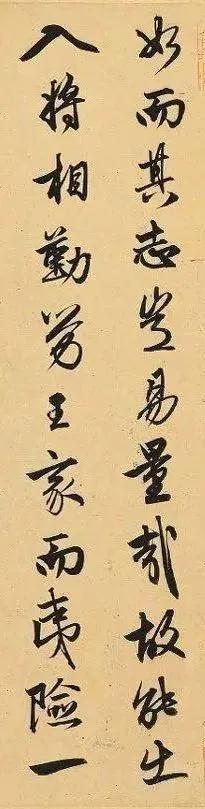 如而其志岂易量哉故能出
入将相勤劳王家而夷險一